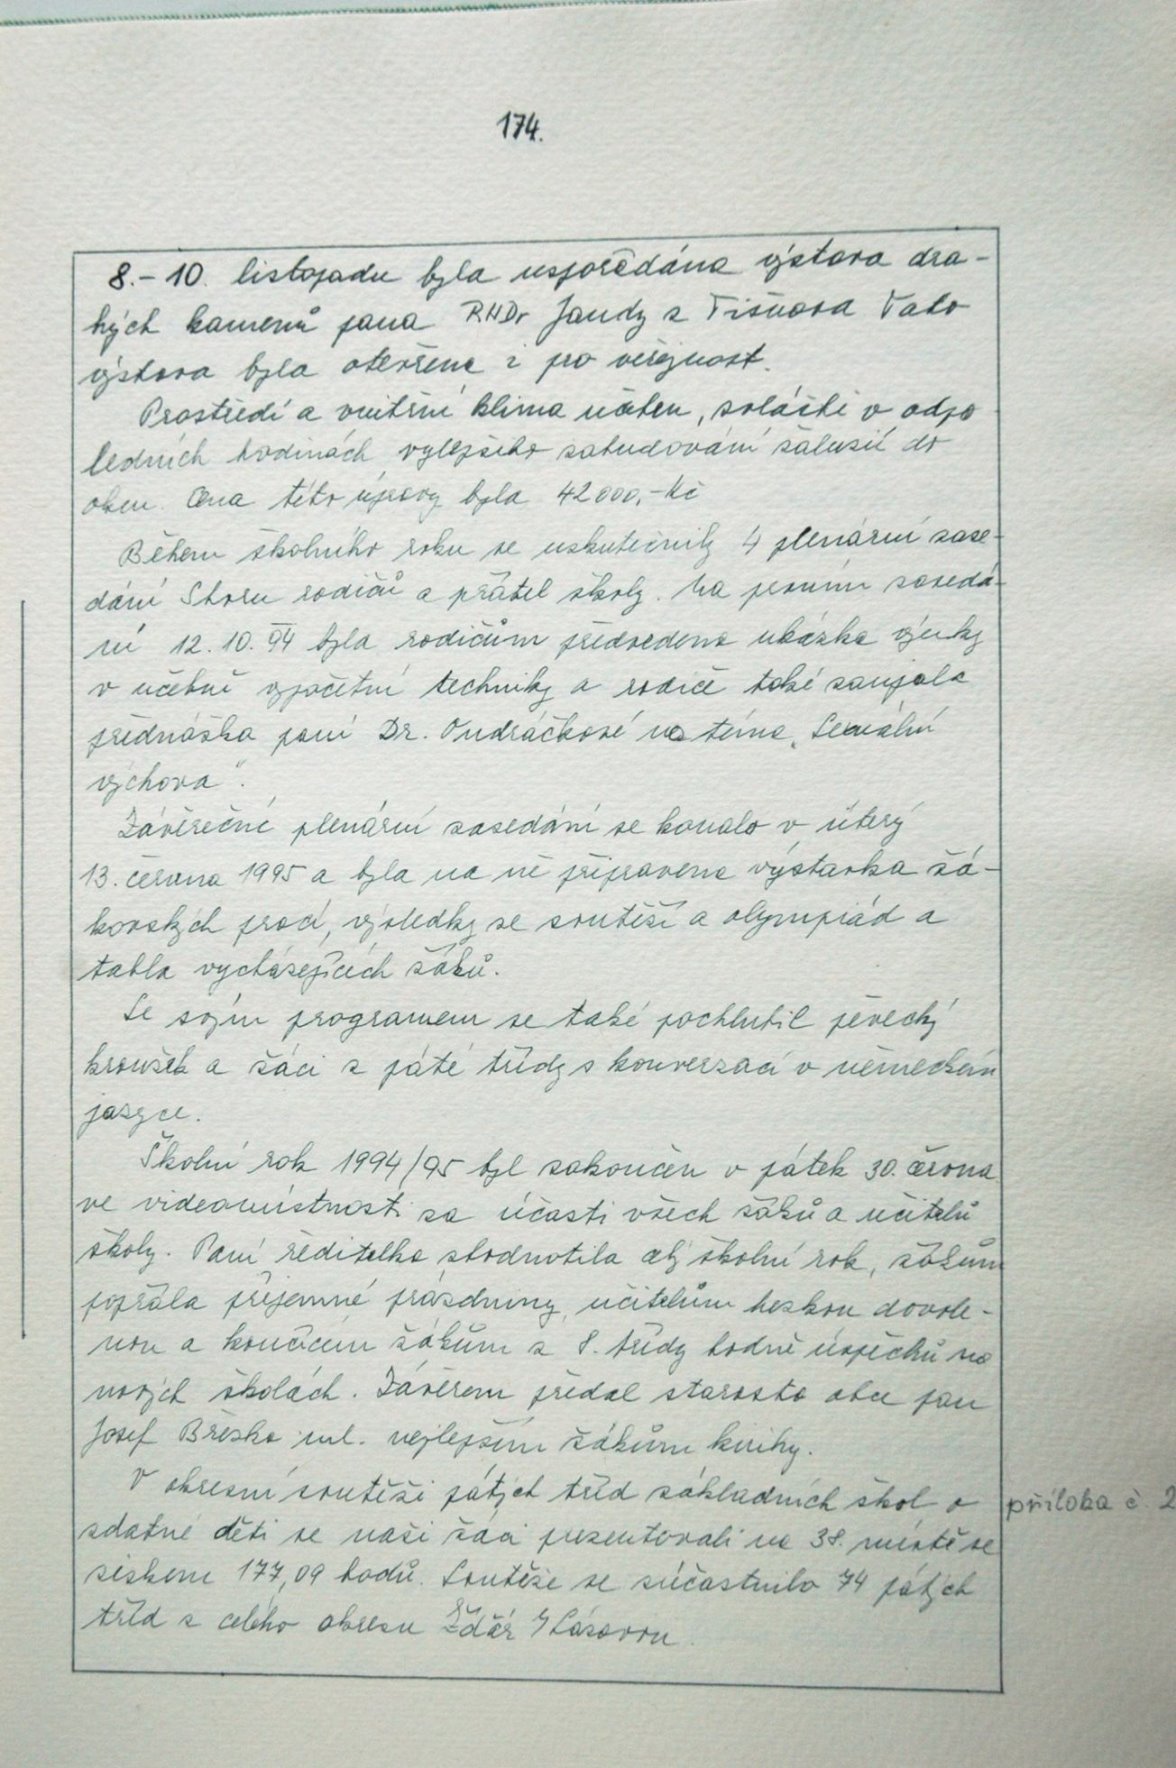 174.
8.-10. listopadu byla uspořádána výstava dra-
hých kamenů pana RNDr Jandy z Tišnova Tato
výstava byla otevřena i pro veřejnost.
Prostředí a vnitřní klima učeben, zvláště v odpo
ledních hodinách vylepšilo zabudování žaluzií do
oken. Cena této úpravy byla 42 000,- Kč
Během školního roku se uskutečnily 4 plenární zase-
dání Sboru rodičů a přátel školy. Na prvním zasedá-
ní 12. 10. 94 byla rodičům předvedena ukázka výuky
v učebně výpočetní techniky a rodiče také zaujala
přednáška paní Dr. Ondráčkové na téma „Sexuální
výchova".
Závěrečné plenární zasedání se konalo v úterý
13. června 1995 a byla na ně připravena výstavka žá-
kovských prací, výsledky se soutěží a olympiád a
tabla vycházejících žáků.
Se svým programem se také pochlubil pěvecký
kroužek a žáci z páté třídy s konverzací v německém
jazyce.
Školní rok 1994/95 byl zakončen v pátek 30. června
ve videomístnosti za účasti všech žáků a učitelů
školy. Paní ředitelka zhodnotila celý školní rok, žákům
popřála příjemné prázdniny, učitelům hezkou dovole-
nou a končícím žákům z 8. třídy hodně úspěchů na
nových školách. Závěrem předal starosta obce pan
Josef Břeska ml. nejlepším žákům knihy.
V okresní soutěži pátých tříd základních škol o příloha č. 2
zdatné děti se naši žáci prezentovali na 38. místě se
ziskem 177,09 bodů. Soutěže se zúčastnilo 74 pátých
tříd z celého okresu Žďár n/Sázavou.